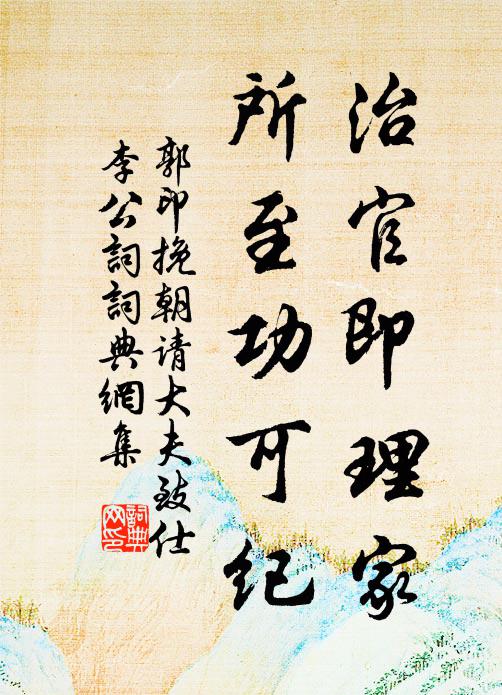 治官即理家
所至功可纪
郭印挽朝请大夫致仕
李公詞詞典網集
詞典网印